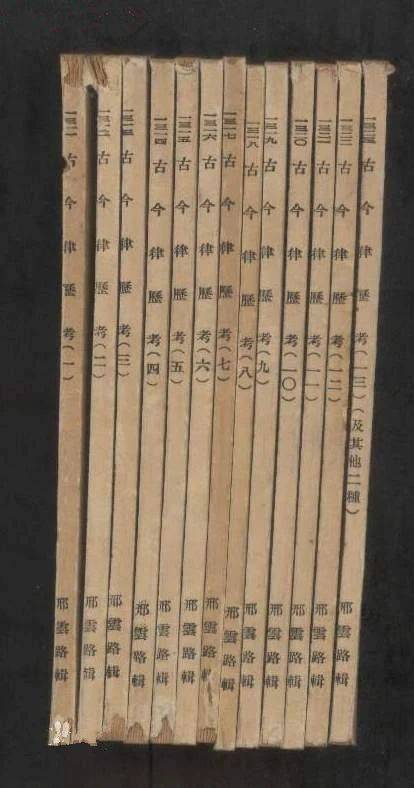 一三一一 古今律歷考(一) 邢雲路輯
一三一二 古今律歷考(二) 邢雲路輯
一三一三 古今律歷考(三) 邢雲路輯
一三一四 古今律歷考(四) 邢雲路輯
一三一五 古今律歷考(五) 邢雲路輯
一三一六 古今律歷考(六) 邢雲路輯
一三一七 古今律歷考(七) 邢雲路輯
一三一八 古今律歷考(八) 邢雲路輯
一三一九 古今律歷考(九) 邢雲路輯
一三二〇 古今律歷考(一〇) 邢雲路輯
一三二一 古今律歷考(一一) 邢雲路輯
一三二二 古今律歷考(一二) 邢雲路輯
一三二三 古今律歷考(一三)(及其他二種) 邢雲路輯